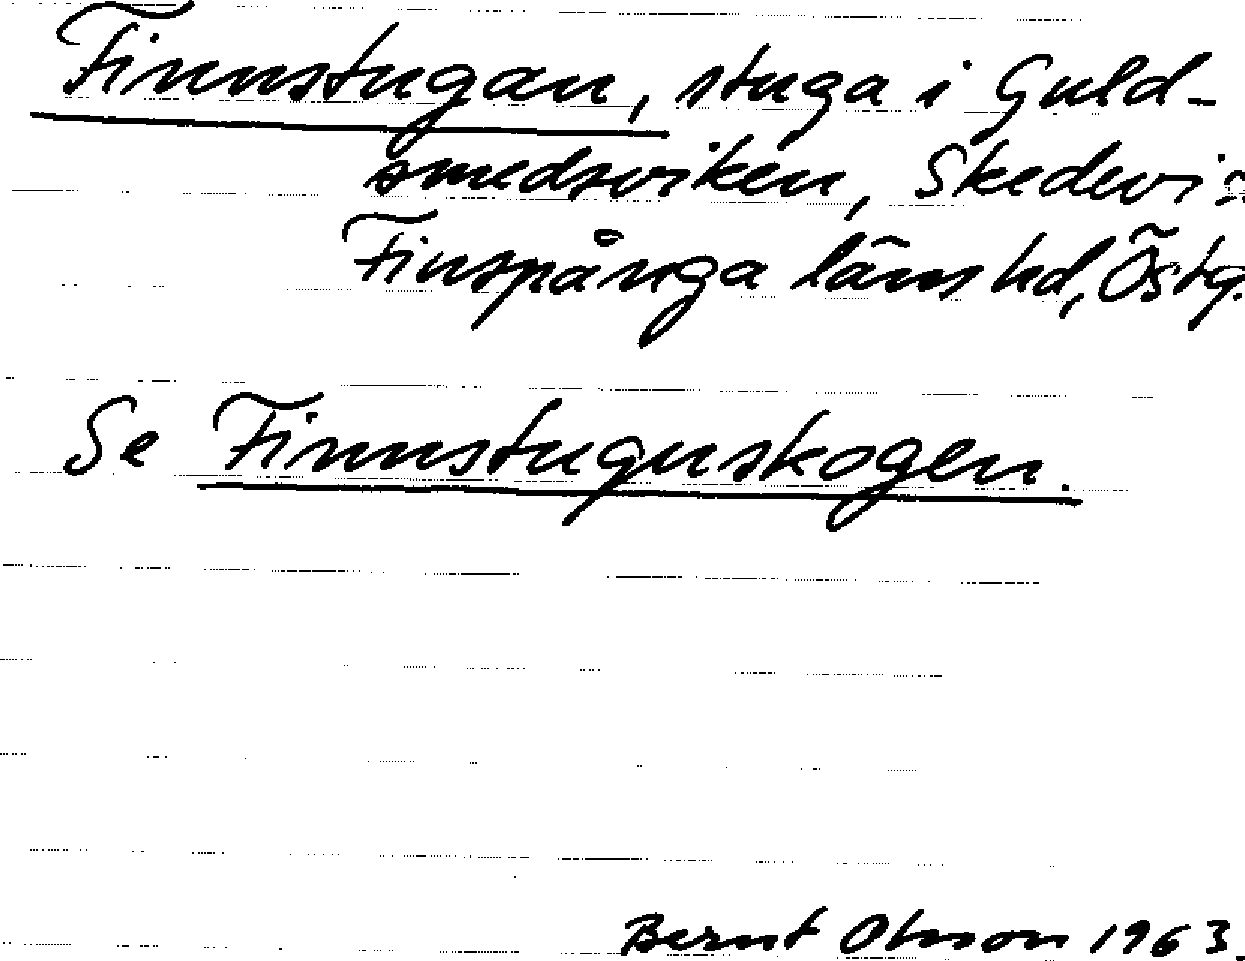 Finnstugan, stuga i Guld-
smedsviken, Skedevi s
Finspånga läns hd, Östg.
Se Finnstuguskogen.
Bernt Olsson 1963.